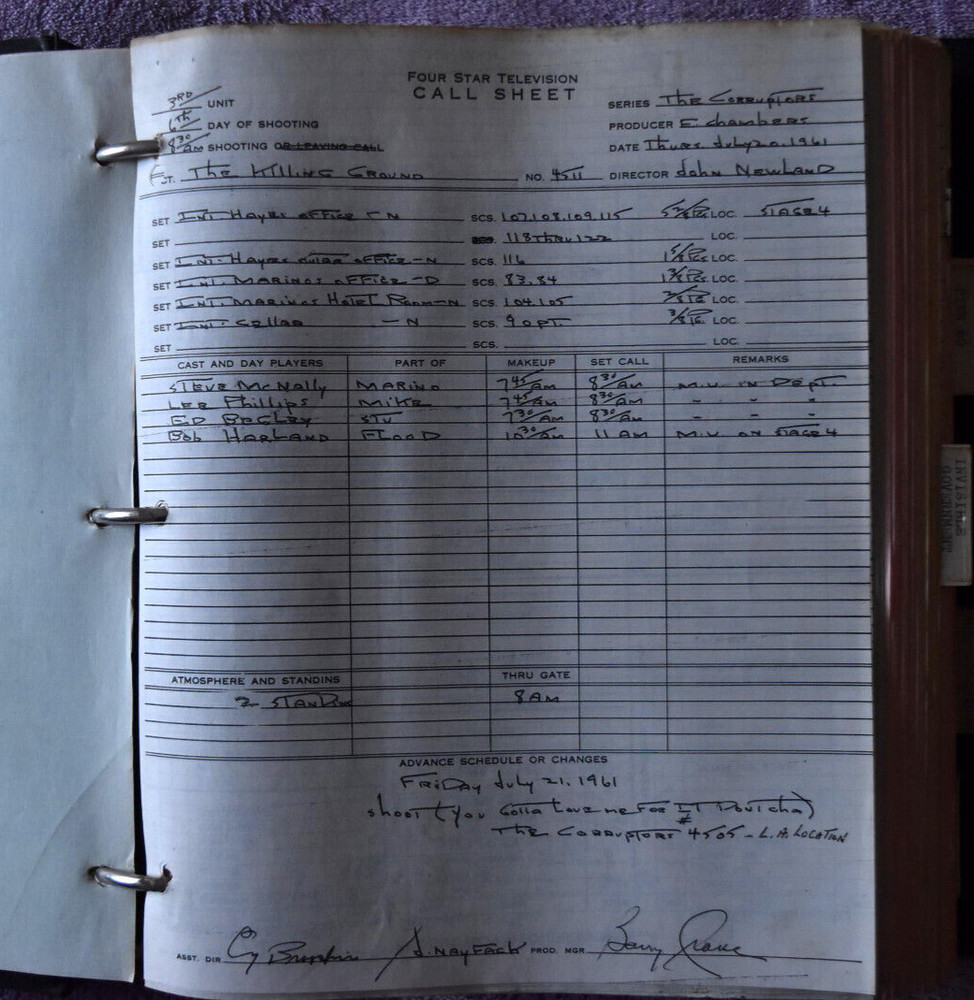 FOUR STAR TELEVISION
CALL SHEET
3RD UNIT
6th DAY OF SHOOTING
8 30 AM SHOOTING OR LEAVING CALL
SERIES The Corruptors
PRODUCER E. Chambers
DATE Thurs July 20, 1961
PT. The Killing Ground NO. 4511 DIRECTOR John Newland
SET Int. Hayes office - N SCS. 107,108,109,115 LOC. STAGE 4
SET SCS. 118 thru 122 LOC.
SET Int. Hayes outer office - N SCS. 116 LOC.
SET Int. Marinos office - D SCS. 83, 84 LOC.
SET Int. Marinos Hotel Room - N SCS. 104, 105 LOC.
SET Int. Cellar - N SCS. 90 PT. 3/8 PG. LOC.
SET SCS. LOC.
CAST AND DAY PLAYERS PART OF MAKEUP SET CALL REMARKS
Steve McNally Marino 7 45 AM 8 30 AM M.U. in Dept.
Lee Phillips Mike 7 45 AM 8 30 AM " " "
Ed Begley Stu 7 30 AM 8 30 AM " " "
Bob Harland Flood 10 30 AM 11 AM M.U. on Stage 4
ATMOSPHERE AND STANDINS THRU GATE
2 Standins 8 AM
ADVANCE SCHEDULE OR CHANGES
Friday July 21, 1961
Shoot (You Gotta Love me For It Doutcha)
The Corruptors # 4505 - L.A. Location
ASST. DIR. J. Nayfack PROD. MGR Barry Crane
INVISIBLE GOVERNMENT